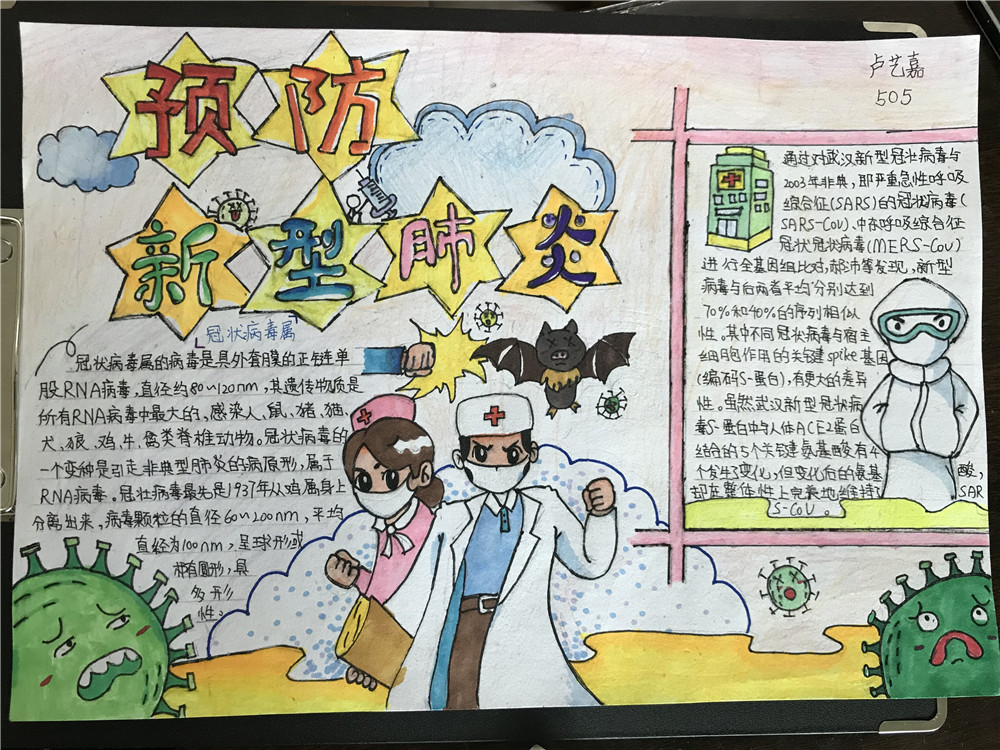 预防
新型肺炎
卢艺嘉
505
冠状病毒属
冠状病毒属的病毒是具外套膜的正链单
股RNA病毒，直径约80~120nm，其遗传物质是
所有RNA病毒中最大的，感染人、鼠、猪、猫、
犬、狼、鸡、牛、禽类脊椎动物。冠状病毒的
一个变种是引起非典型肺炎的病原形，属于
RNA病毒。冠状病毒最先是1937年从鸡属身上
分离出来，病毒颗粒的直径60~200nm，平均
直径为100nm，呈球形或
椭圆形，具
多形
性。
通过对武汉新型冠状病毒与
2003年非典，即严重急性呼吸
综合征(SARS)的冠状病毒(
SARS-CoV)、中东呼吸综合征
冠状冠状病毒(MERS-CoV)
进行全基因组比对，郝沛等发现，新型
病毒与后两者平均分别达到
70%和40%的序列相似
性。其中不同冠状病毒与宿主
细胞作用的关键spike基因
(编码S-蛋白)，有更大的差异
性。虽然武汉新型冠状病
毒S-蛋白中与人体ACE2蛋白
结合的5个关键氨基酸有4
个发生了变化，但变化后的氨基酸，
却在整体性上完美地维持了SAR
S-CoV。